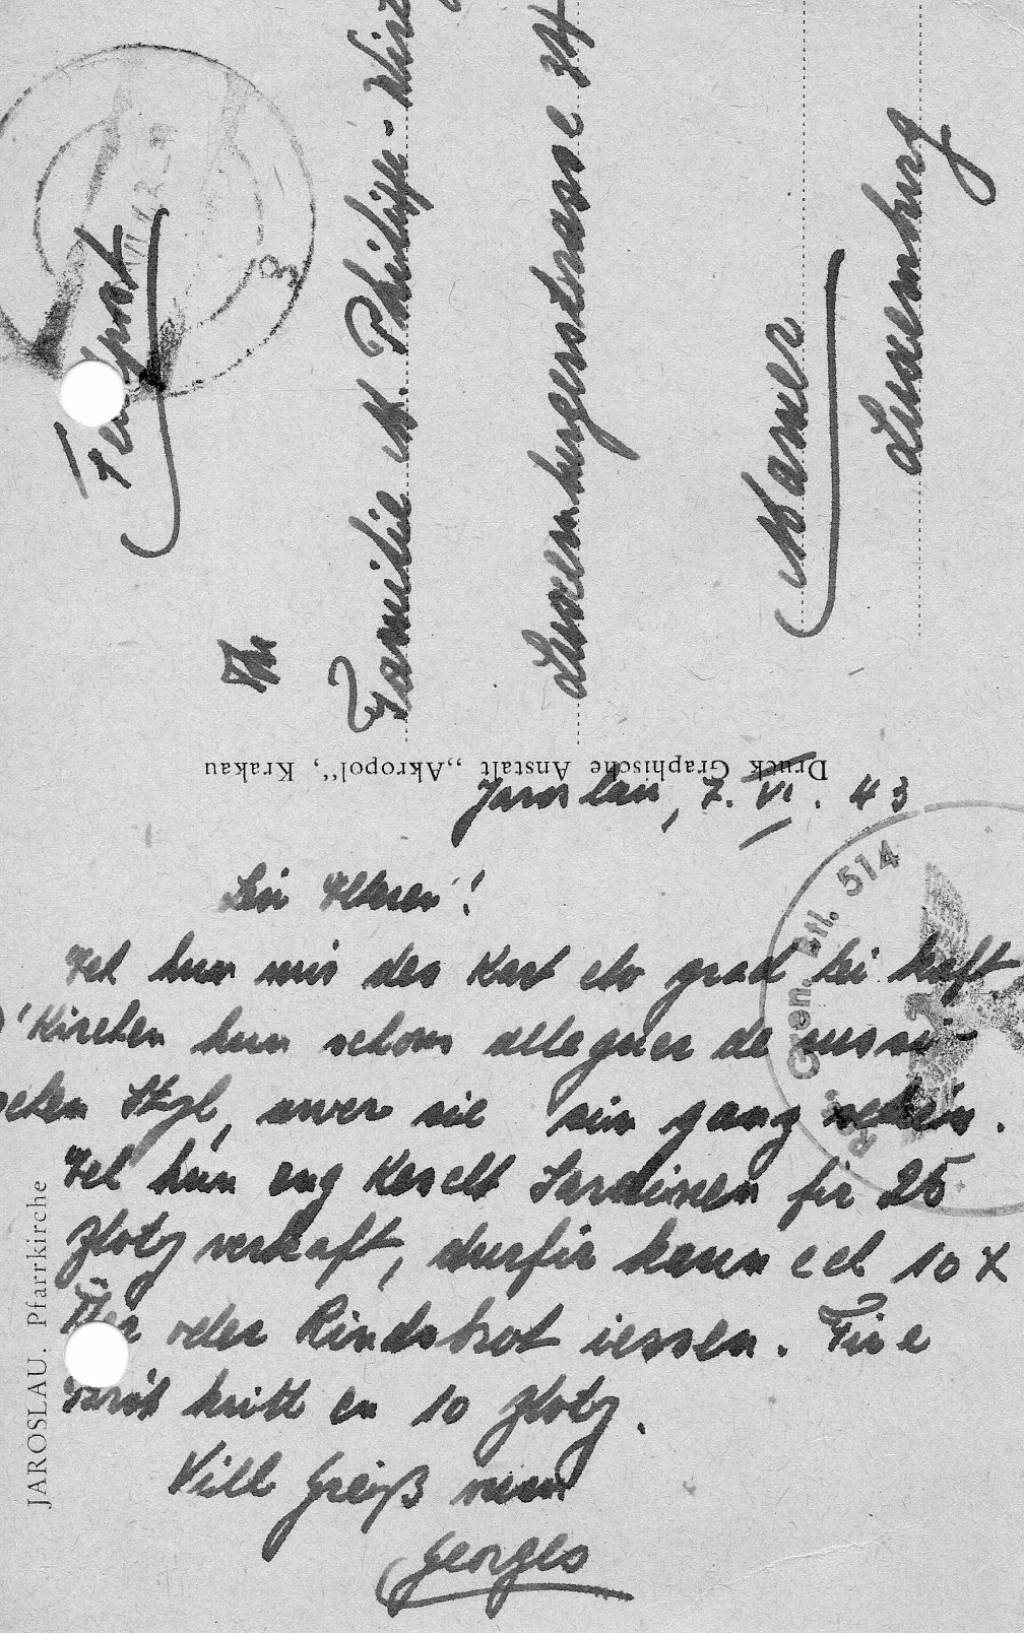 Feldpost
An
Familie M. Philippe-Wirt
Luxemburgerstrasse 34
Mamer
Luxemburg
Druck Graphische Anstalt „Akropol“, Krakau
Jaroslau, 7. VI. 43
Léif Elteren!
Ech hun mir des Kart elo grad hei kaft
D'Kirchen hun schons alleguer de russi-
schen Styl, awer sie sin ganz schéin.
Ech hun eng Këscht Sardinen fir 25
Zloty verkaft, durfir kann ech 10 X
Äer oder Rindsbrot iessen. Fir e
Brót kritt en 10 Zloty.
Vill Gréiß vum
Georges
JAROSLAU. Pfarrkirche
Gren. Btl. 514